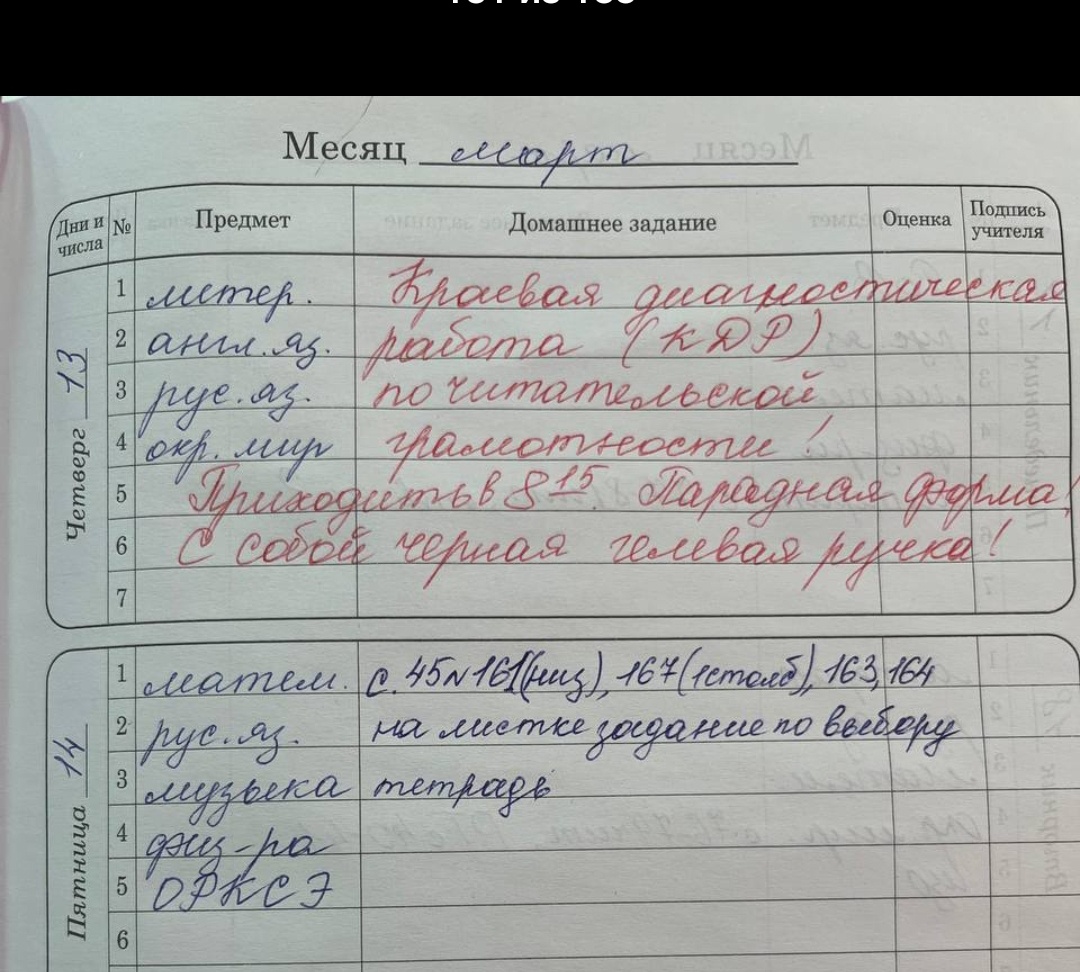 Месяц март
Дни и числа № Предмет Домашнее задание Оценка Подпись учителя
Четверг 13
1 литер. Краевая диагностическая
2 англ. яз. работа (КДР)
3 рус. яз. по читательской
4 окр. мир грамотности!
5 Приходить в 8 15. Парадная форма!
6 С собой черная гелевая ручка!
7
Пятница 14
1 матем. с. 45 № 161(низ), 167(1столб), 163, 164
2 рус. яз. на листке задание по выбору
3 музыка тетрадь
4 физ-ра
5 ОРКСЭ
6